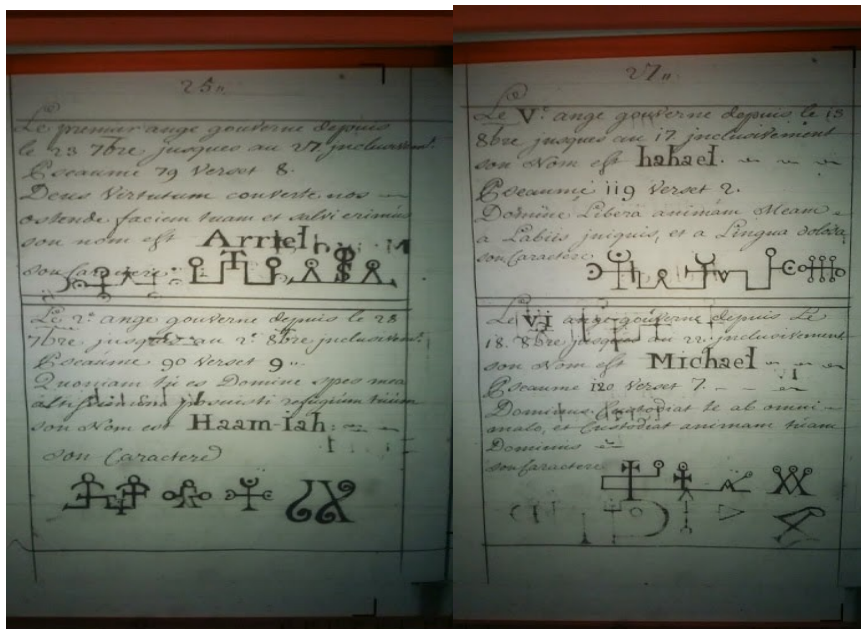 25"
Le premier ange gouverne depuis
le 23 7bre jusques au 27 inclusivem.t
Pseaume 79 Verset 8.
Deus Virtutum converte nos
ostende faciem tuam et salvi erimus
son nom est Arriel
son Caractere
Le 2e ange gouverne depuis le 28
7bre jusques au 2e 8bre inclusivem.t
Pseaume 90 Verset 9"
Quoniam tu es Domine spes mea
altissimum posuisti refugium tuum
son Nom est Haam-iah
son Caractere
27"
Le Ve ange gouverne depuis le 13
8bre jusques au 17 inclusivement
son Nom est hahael.
Pseaume 119 Verset 2.
Domine Libera animam Meam
a Labiis iniquis, et a Lingua dolosa,
son Caractere
Le VI ange gouverne depuis Le
18. 8bre jusques au 22 inclusivement
son Nom est Michael
Pseaume 120 Verset 7.
Dominus Custodiat te ab omni
malo, et Custodiat animam tuam
Dominus
son Caractere